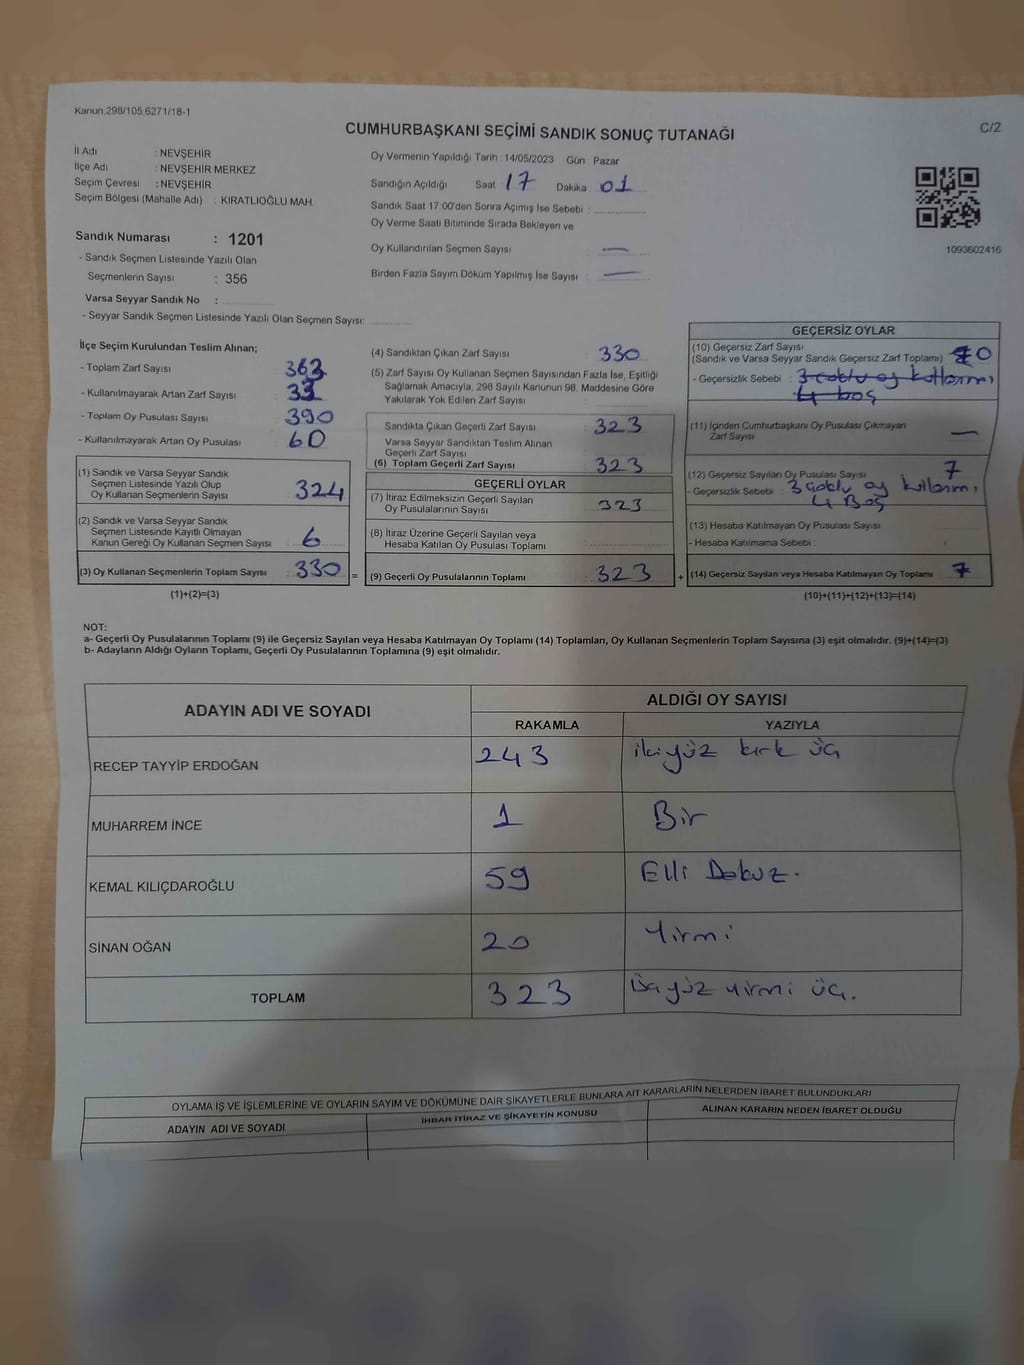 Kanun:298/105,6271/18-1
C/2
CUMHURBAŞKANI SEÇİMİ SANDIK SONUÇ TUTANAĞI
İl Adı : NEVŞEHİR
İlçe Adı : NEVŞEHİR MERKEZ
Seçim Çevresi : NEVŞEHİR
Seçim Bölgesi (Mahalle Adı) : KIRATLIOĞLU MAH.
Sandık Numarası : 1201
- Sandık Seçmen Listesinde Yazılı Olan
Seçmenlerin Sayısı : 356
Varsa Seyyar Sandık No :
- Seyyar Sandık Seçmen Listesinde Yazılı Olan Seçmen Sayısı:
Oy Vermenin Yapıldığı Tarih : 14/05/2023 Gün : Pazar
Sandığın Açıldığı Saat 17 Dakika 01
Sandık Saat 17:00'den Sonra Açımış İse Sebebi :
Oy Verme Saati Bitiminde Sırada Bekleyen ve
Oy Kullandırılan Seçmen Sayısı : —
Birden Fazla Sayım Döküm Yapılmış İse Sayısı : —
1093602416
İlçe Seçim Kurulundan Teslim Alınan;
- Toplam Zarf Sayısı : 363
- Kullanılmayarak Artan Zarf Sayısı : 33
- Toplam Oy Pusulası Sayısı : 390
- Kullanılmayarak Artan Oy Pusulası : 60
(1) Sandık ve Varsa Seyyar Sandık
Seçmen Listesinde Yazılı Olup
Oy Kullanan Seçmenlerin Sayısı : 324
(2) Sandık ve Varsa Seyyar Sandık
Seçmen Listesinde Kayıtlı Olmayan
Kanun Gereği Oy Kullanan Seçmen Sayısı : 6
(3) Oy Kullanan Seçmenlerin Toplam Sayısı : 330 =
(1)+(2)=(3)
(4) Sandıktan Çıkan Zarf Sayısı : 330
(5) Zarf Sayısı Oy Kullanan Seçmen Sayısından Fazla İse, Eşitliği
Sağlamak Amacıyla, 298 Sayılı Kanunun 98. Maddesine Göre
Yakılarak Yok Edilen Zarf Sayısı :
Sandıkta Çıkan Geçerli Zarf Sayısı : 323
Varsa Seyyar Sandıktan Teslim Alınan
Geçerli Zarf Sayısı :
(6) Toplam Geçerli Zarf Sayısı : 323
GEÇERLİ OYLAR
(7) İtiraz Edilmeksizin Geçerli Sayılan
Oy Pusulalarının Sayısı : 323
(8) İtiraz Üzerine Geçerli Sayılan veya
Hesaba Katılan Oy Pusulası Toplamı :
(9) Geçerli Oy Pusulalarının Toplamı : 323 +
GEÇERSİZ OYLAR
(10) Geçersiz Zarf Sayısı
(Sandık ve Varsa Seyyar Sandık Geçersiz Zarf Toplamı) : 0
- Geçersizlik Sebebi : 3 çoklu oy kullanımı
4 boş
(11) İçinden Cumhurbaşkanı Oy Pusulası Çıkmayan
Zarf Sayısı : —
(12) Geçersiz Sayılan Oy Pusulası Sayısı : 7
- Geçersizlik Sebebi : 3 çoklu oy kullanımı
4 Boş
(13) Hesaba Katılmayan Oy Pusulası Sayısı :
- Hesaba Katılmama Sebebi :
(14) Geçersiz Sayılan veya Hesaba Katılmayan Oy Toplamı : 7
(10)+(11)+(12)+(13)=(14)
NOT:
a- Geçerli Oy Pusulalarının Toplamı (9) ile Geçersiz Sayılan veya Hesaba Katılmayan Oy Toplamı (14) Toplamları, Oy Kullanan Seçmenlerin Toplam Sayısına (3) eşit olmalıdır. (9)+(14)=(3)
b- Adayların Aldığı Oyların Toplamı, Geçerli Oy Pusulalarının Toplamına (9) eşit olmalıdır.
ADAYIN ADI VE SOYADI ALDIĞI OY SAYISI
RAKAMLA YAZIYLA
RECEP TAYYİP ERDOĞAN 243 ikiyüz kırk üç
MUHARREM İNCE 1 Bir
KEMAL KILIÇDAROĞLU 59 Elli Dokuz.
SİNAN OĞAN 20 Yirmi
TOPLAM 323 üçyüz yirmi üç.
OYLAMA İŞ VE İŞLEMLERİNE VE OYLARIN SAYIM VE DÖKÜMÜNE DAİR ŞİKAYETLERLE BUNLARA AİT KARARLARIN NELERDEN İBARET BULUNDUKLARI
ADAYIN ADI VE SOYADI İHBAR İTİRAZ VE ŞİKAYETİN KONUSU ALINAN KARARIN NEDEN İBARET OLDUĞU